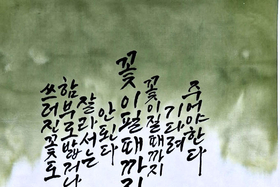 쓰러진 꽃도
함부로 밟거나
잘라서는
안된다
꽃이 필 때까지
꽃이 질 때까지
기다려
주어야 한다